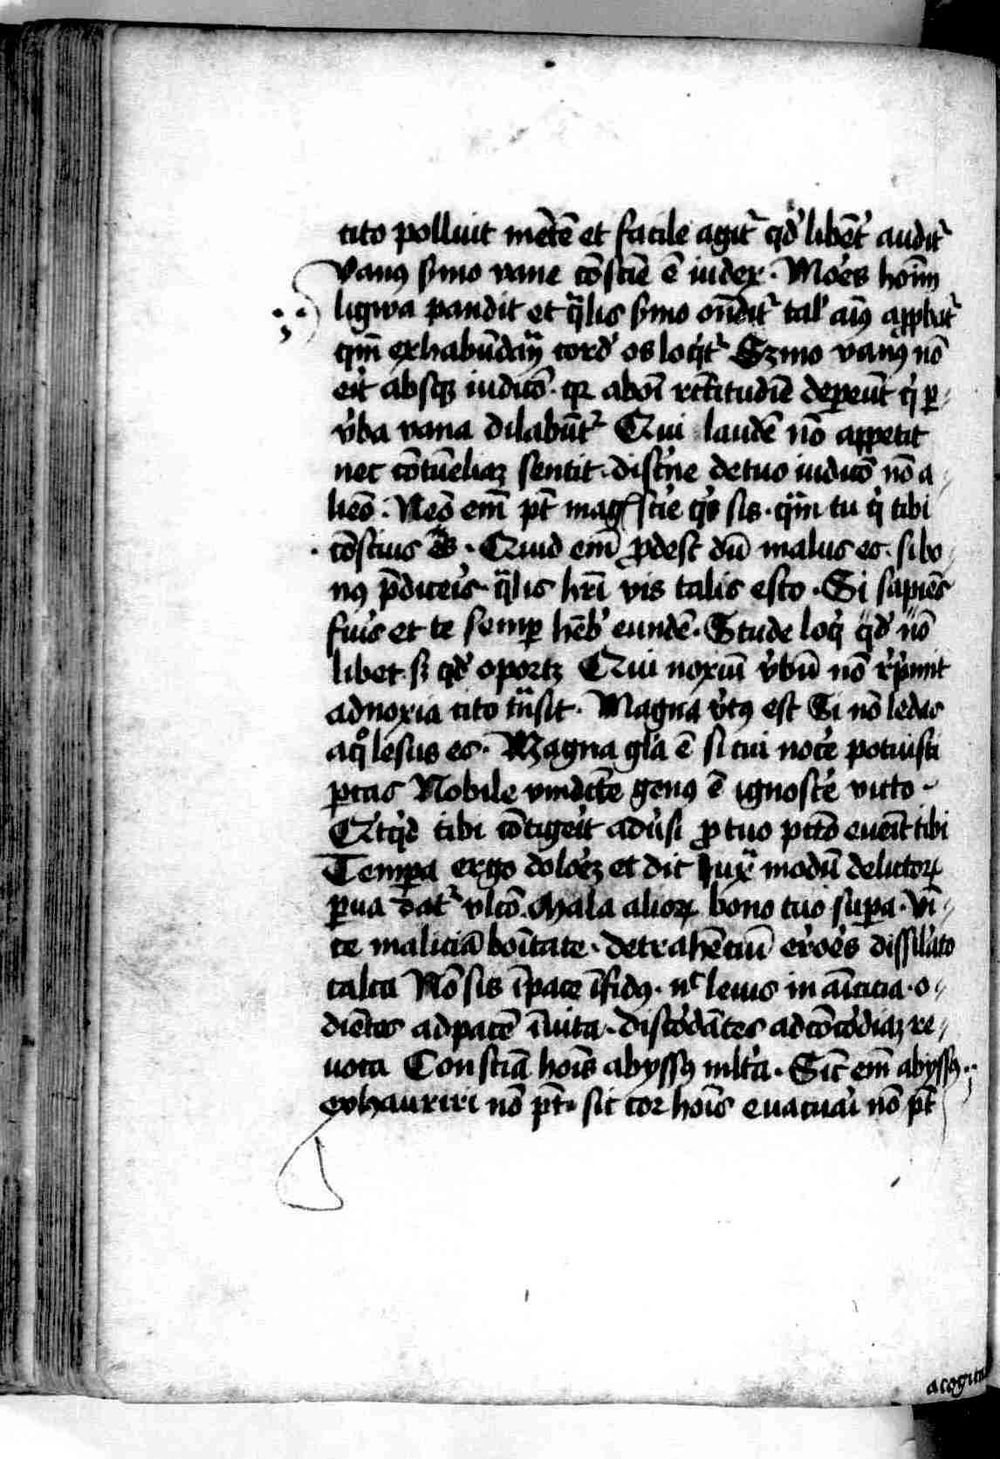 cito polluit mētē et facile agitᷣ qd̕ libēt̕ auditᷣ
vanꝰ s̕mo vane cōsciē ē iudex · Mores hoīm
ligwa pandit et qͣlis s̕mo oñditᷣ tal̕ aīꝰ ap̄p̄batᷣ
qm̄ exhabūdaⁿ cord̕ os loqtᷣ Sermo vanꝰ nō
erit absqꝫ iudicō · qꝛ aboī rc̄titudīe depereūt q̇ p̱
v̕ba vana dilabūtᷣ Qui laudē nō appetit
nec cōtūeliaꝫ sentit · discerne de tuo iudicō nō a
lieō · Neō em̄ pt̄ mag̕ scīe qs̕ sis · qͣm tu q̇ tibi
cōscius es · Quid em̄ ꝓdest dū malus es · si bo
nꝰ p̄diceris · qͣlis hr̄i vis talis esto · Si sapiēs
fuis̕ et te semp̱ hēb̕ eundē · Stude loq̇ qd̕ nō
libet · sꝫ qd̕ oportꝫ Qui noxiū v̕bū nō rep̕mit
ad noxia cito tͣnsit · Magna v̕tꝰ est Si nō ledas
a qͦ lesus es · Magna gl̄a ē si cui noce̕ potuisti
p̱cas Nobile vindicte genꝰ ē ignosce̕ victo
Qtqd̕ tibi cōtigerit adūsi ꝓ tuo pctō eueīt tibi
Tempera ergo doloreꝫ et dic Iuxͣ modū delictoꝝ
p̱ua datᷣ vlcō · Mala alioꝝ bono tuo supa · Vī
ce maliciā boītate · detrahēciū er̕ores dissil̕ato
calca Nō sis īpace īfidꝰ · nᶜ leuis in aīcicia · o
diētes ad pacē īuita · discordātes ad cōcordiaꝫ re
uoca Consciā hoīs abyssꝰ mlta · Sic em̄ abyssꝰ
exhauriri nō pt̄ · sic cor hoīs euacuari nō pt̄